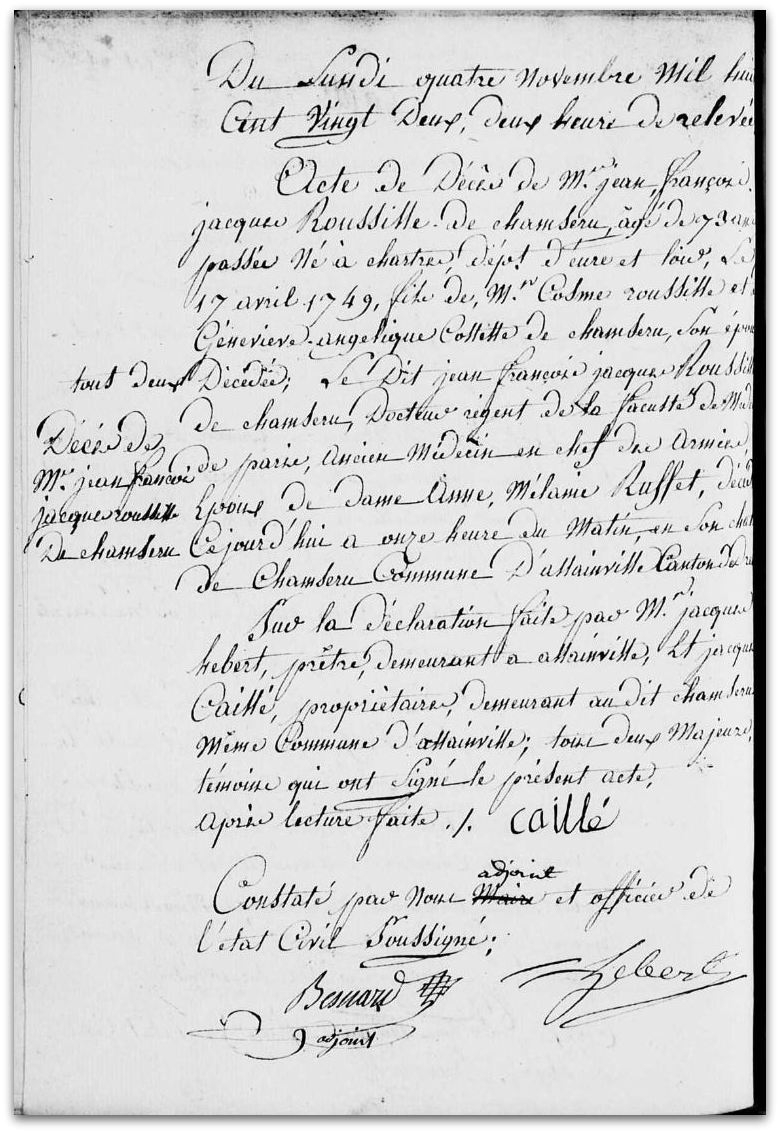 Du Lundi quatre Novembre Mil huit
Cent Vingt Deux, deux heure de relevée
Acte de Décès de Mr. jean, françois,
jacques Roussille de chamseru, âgé de 73 ans
passés Né à chartres, dépt. d'eure et loir, Le
17 avril 1749, fils de, Mr. Cosme roussille et
Géneviere angelique Collette de chamseru, Son épou
tous deux Décédés; Le Dit jean françois jacques Roussill
de chamseru, Docteur régent de la faculté de Méd
Décès de
Mr. jean françois
jacques roussille
De chamseru
de paris, ancien Médecin en chef des armées,
Epoux de dame Anne, Mélanie Ruffet, décéd
Cejourd'hui a onze heure du Matin, en Son chat
de Chamseru Commune D'allainville Canton de
Sur la déclaration faite par Mr. jacques
hebert, prêtre, demeurant a allainville, Et jacques
Caillé, propriétaire, demeurant au dit chamseru
Même Commune d'allainville; tous deux Majeurs,
témoins qui ont Signé le présent acte,
après lecture faite ./. Caillé
adjoint
Constaté par Nous Maire et officier de
l'état Civil Soussigné;
Besnard hebert
adjoint